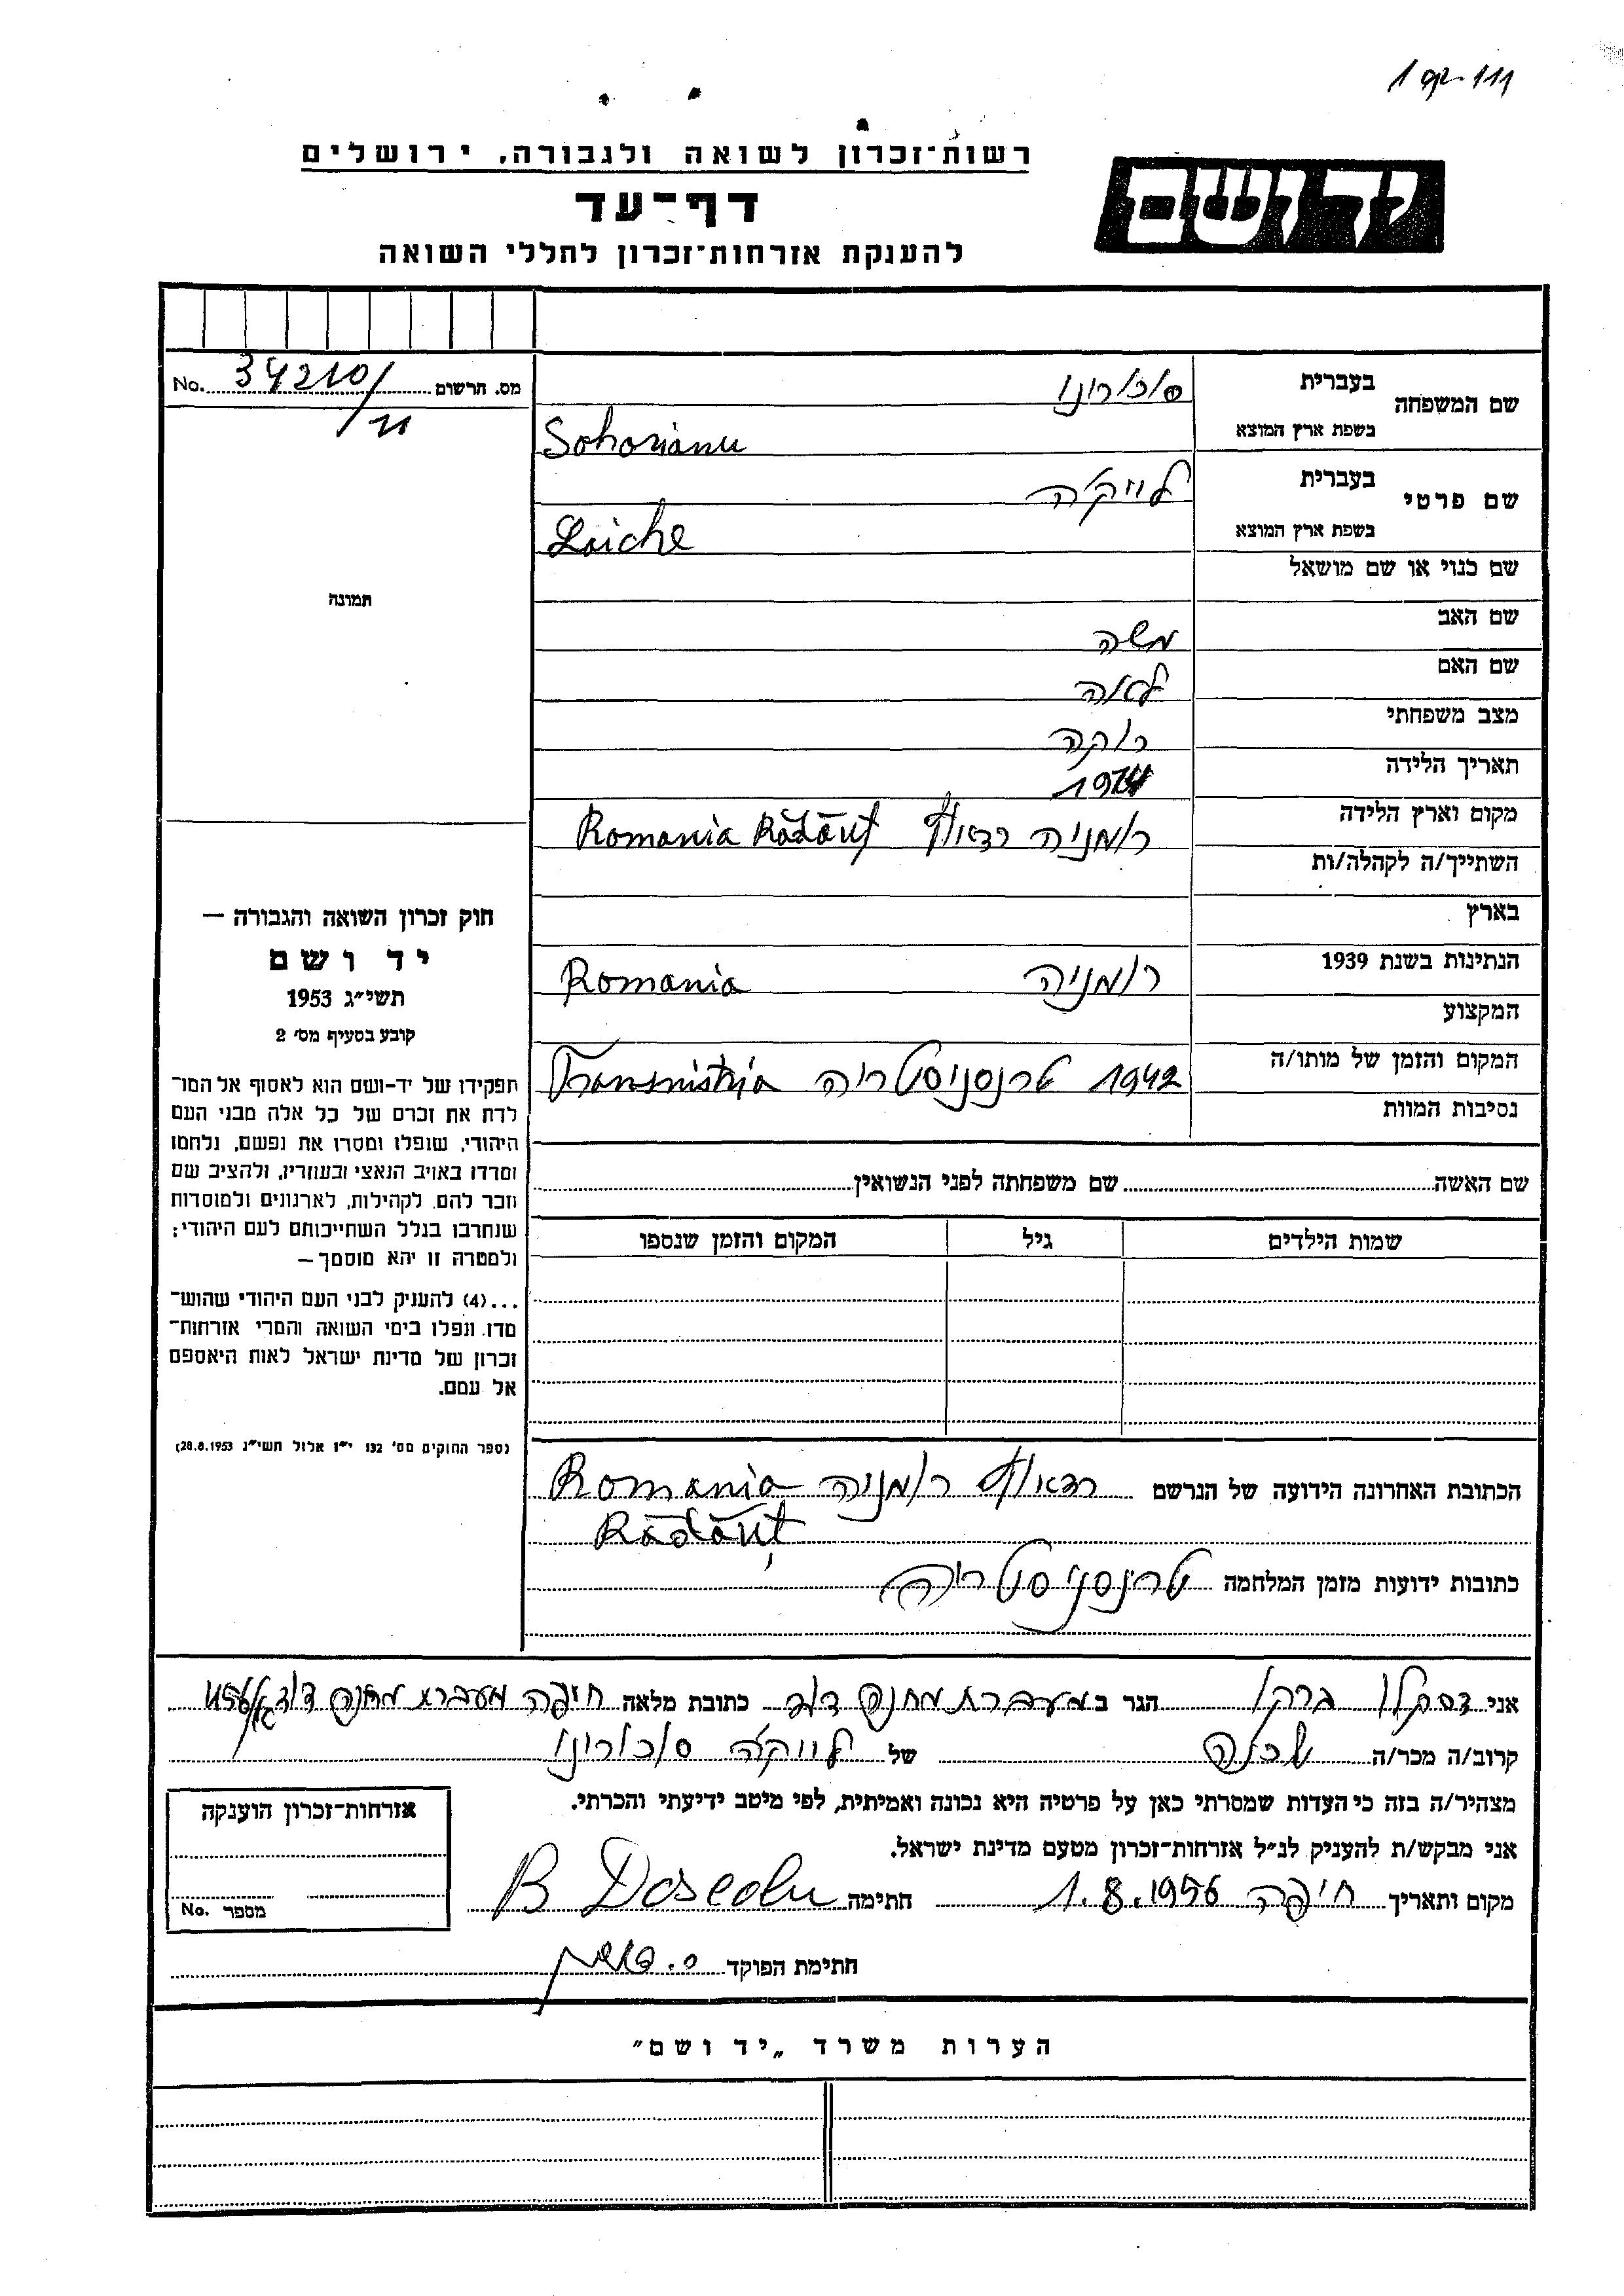 רשות־זכרון לשואה ולגבורה, ירושלים
יד ושם
דף־עד
להענקת אזרחות־זכרון לחללי השואה
מס. הרשום 34210/ No.
שם המשפחה
בעברית סוכוריונו
בשפת ארץ המוצא Sohorianu
שם פרטי
בעברית לוייקה
בשפת ארץ המוצא Loiche
שם כנוי או שם מושאל
שם האב משה
שם האם לאה
מצב משפחתי רוקה
תאריך הלידה
מקום וארץ הלידה רומניה רדאוץ Romania Rădăuț
השתייך/ה לקהלה/ות
בארץ
הנתינות בשנת 1939 רומניה Romania
המקצוע
המקום והזמן של מותו/ה 1942 טרנסניסטריה Transnistria
נסיבות המוות
תמונה
חוק זכרון השואה והגבורה —
יד ושם
תשי״ג 1953
קובע בסעיף מס׳ 2
תפקידו של יד-ושם הוא לאסוף אל המו־
לדת את זכרם של כל אלה מבני העם
היהודי, שנפלו ומסרו את נפשם, נלחמו
ומרדו באויב הנאצי ובעוזריו, ולהציב שם
וזכר להם, לקהילות, לארגונים ולמוסדות
שנחרבו בגלל השתייכותם לעם היהודי;
ולמטרה זו יהא מוסמך —
...(4) להעניק לבני העם היהודי שהוש־
מדו ונפלו בימי השואה והמרי אזרחות־
זכרון של מדינת ישראל לאות היאספם
אל עמם.
(ספר החוקים מס׳ 132 י״ז אלול תשי״ג 28.8.1953)
שם האשה שם משפחתה לפני הנשואין
שמות הילדים גיל המקום והזמן שנספו
הכתובת האחרונה הידועה של הנרשם רדאוץ רומניה Romania
Rădăuț
כתובות ידועות מזמן המלחמה טרנסניסטריה
אני דסקלו ברקו הגר ב מעברת מחנה דוד כתובת מלאה חיפה מעברת מחנה דוד
קרוב/ה מכר/ה שכנה של לוייקה סוכוריונו
מצהיר/ה בזה כי העדות שמסרתי כאן על פרטיה היא נכונה ואמיתית, לפי מיטב ידיעתי והכרתי.
אני מבקש/ת להעניק לנ״ל אזרחות־זכרון מטעם מדינת ישראל.
מקום ותאריך חיפה 1.8.1956 חתימה B Doscolu
חתימת הפוקד
אזרחות־זכרון הוענקה
מספר No.
הערות משרד „יד ושם״